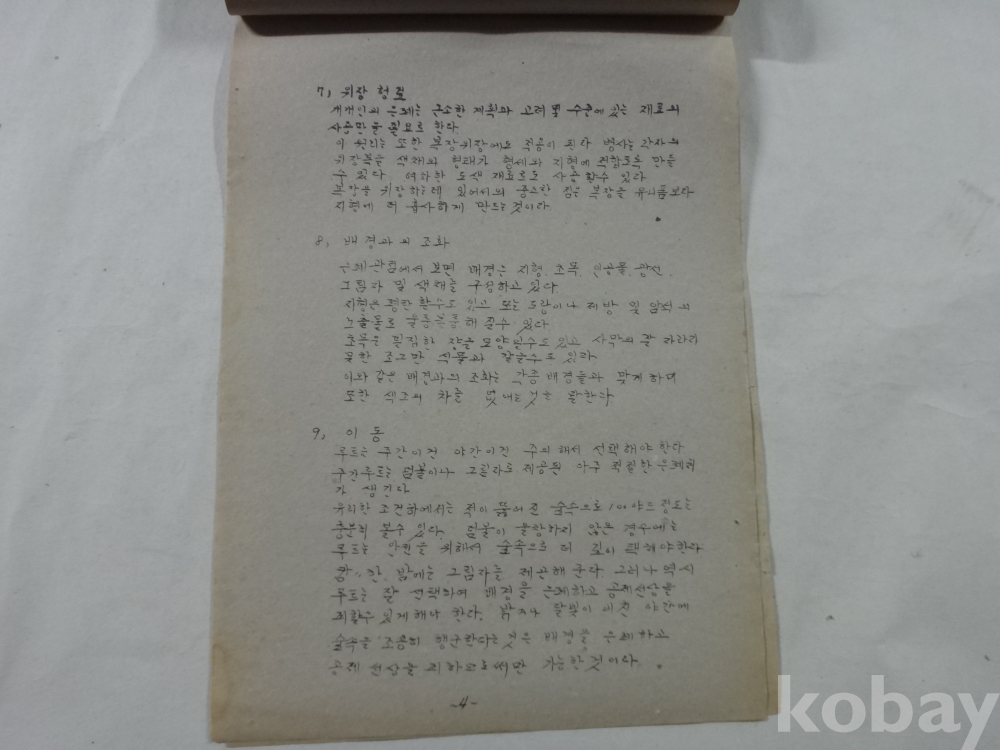 7, 위장 형판
저격인의 은폐는 간소한 계획과 고려 및 수중에 있는 재료의
사용만을 필요로 한다
이 원리는 또한 복장위장에도 적용이 된다 병사는 각자의
위장복을 색채와 형태가 지형에 적합토록 만들
수 있다. 여하한 도색 재료로도 사용 할수 있다
복장을 위장하는데 있어서의 중요한 점은 복장을 유니폼보다
지형에 더 흡사하게 만드는 것이다
8, 배경과의 조화
은폐 관점에서 보면 배경은 지형, 초목, 인공물, 광선,
그림자 및 색채로 구성하고 있다
지형은 평탄 할수도 있으 또는 도랑이나 제방 및 암석의
노출들로 울퉁불퉁 해 질수 있다
초목은 밀집한 장을 모양일수도 있고 사막의 잘 자라지
못한 조그만 식물과 같을수도 있다
이와 같은 배경과의 조화는 각종 배경들과 맞게 하며
또한 색조의 차를 없애는 것을 말한다
9, 이동
루트는 주간이전 야간이전 주의해서 선택해야 한다
주간루트는 덤불이나 그림자로 제공된 아주 적절한 은폐
가 생긴다
유리한 조건하에서는 적이 뚫어진 숲속으로 100야드 정도는
충분히 볼수 있다. 덤불이 울창하지 않은 경우에는
루트는 안전을 위해서 숲속으로 더 깊이 택해야 한다
밤에는 그림자를 제공해 준다 그러나 역시
루트는 잘 선택하여 배경을 은폐하고 공제선상을
피할수 있게 해야 한다. 달빛이 비친 야간에
숲속을 조용히 행군한다는 것은 배경을 은폐하고
공제 선상을 피하므로써만 가능한 것이다.
-4-
kobay